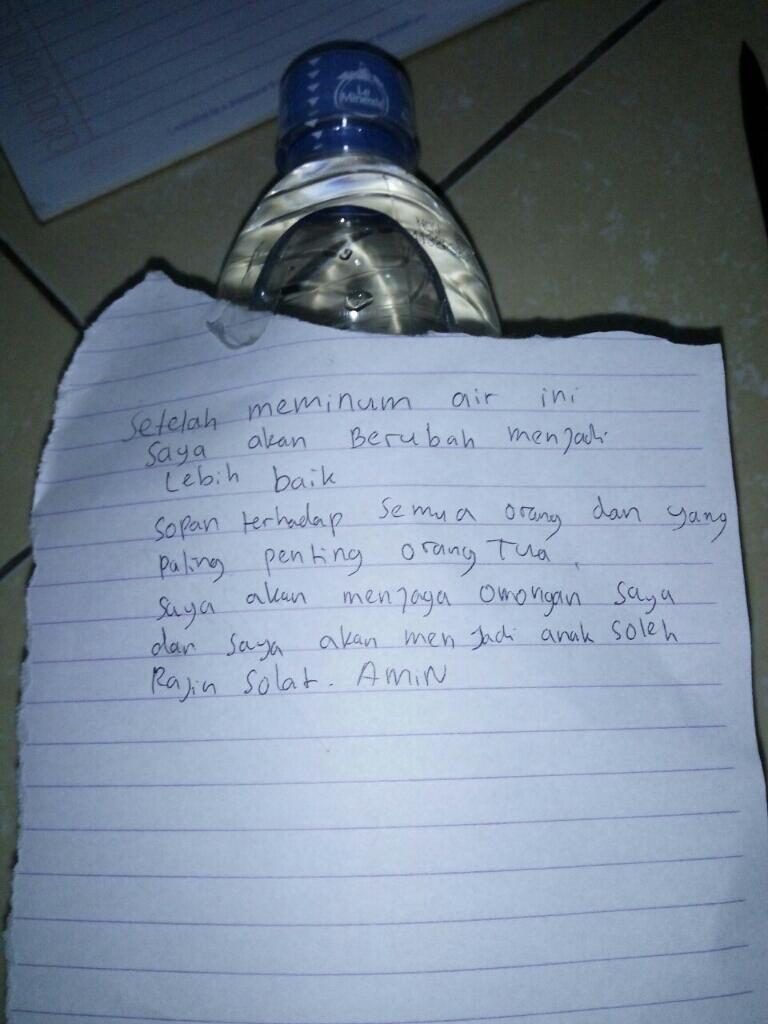 Le
Minerale
Setelah meminum air ini
saya akan Berubah menjadi
Lebih baik
sopan terhadap semua orang dan yang
paling penting orang Tua.
saya akan menjaga omongan saya
dan saya akan menjadi anak soleh
Rajin Solat. AMIN